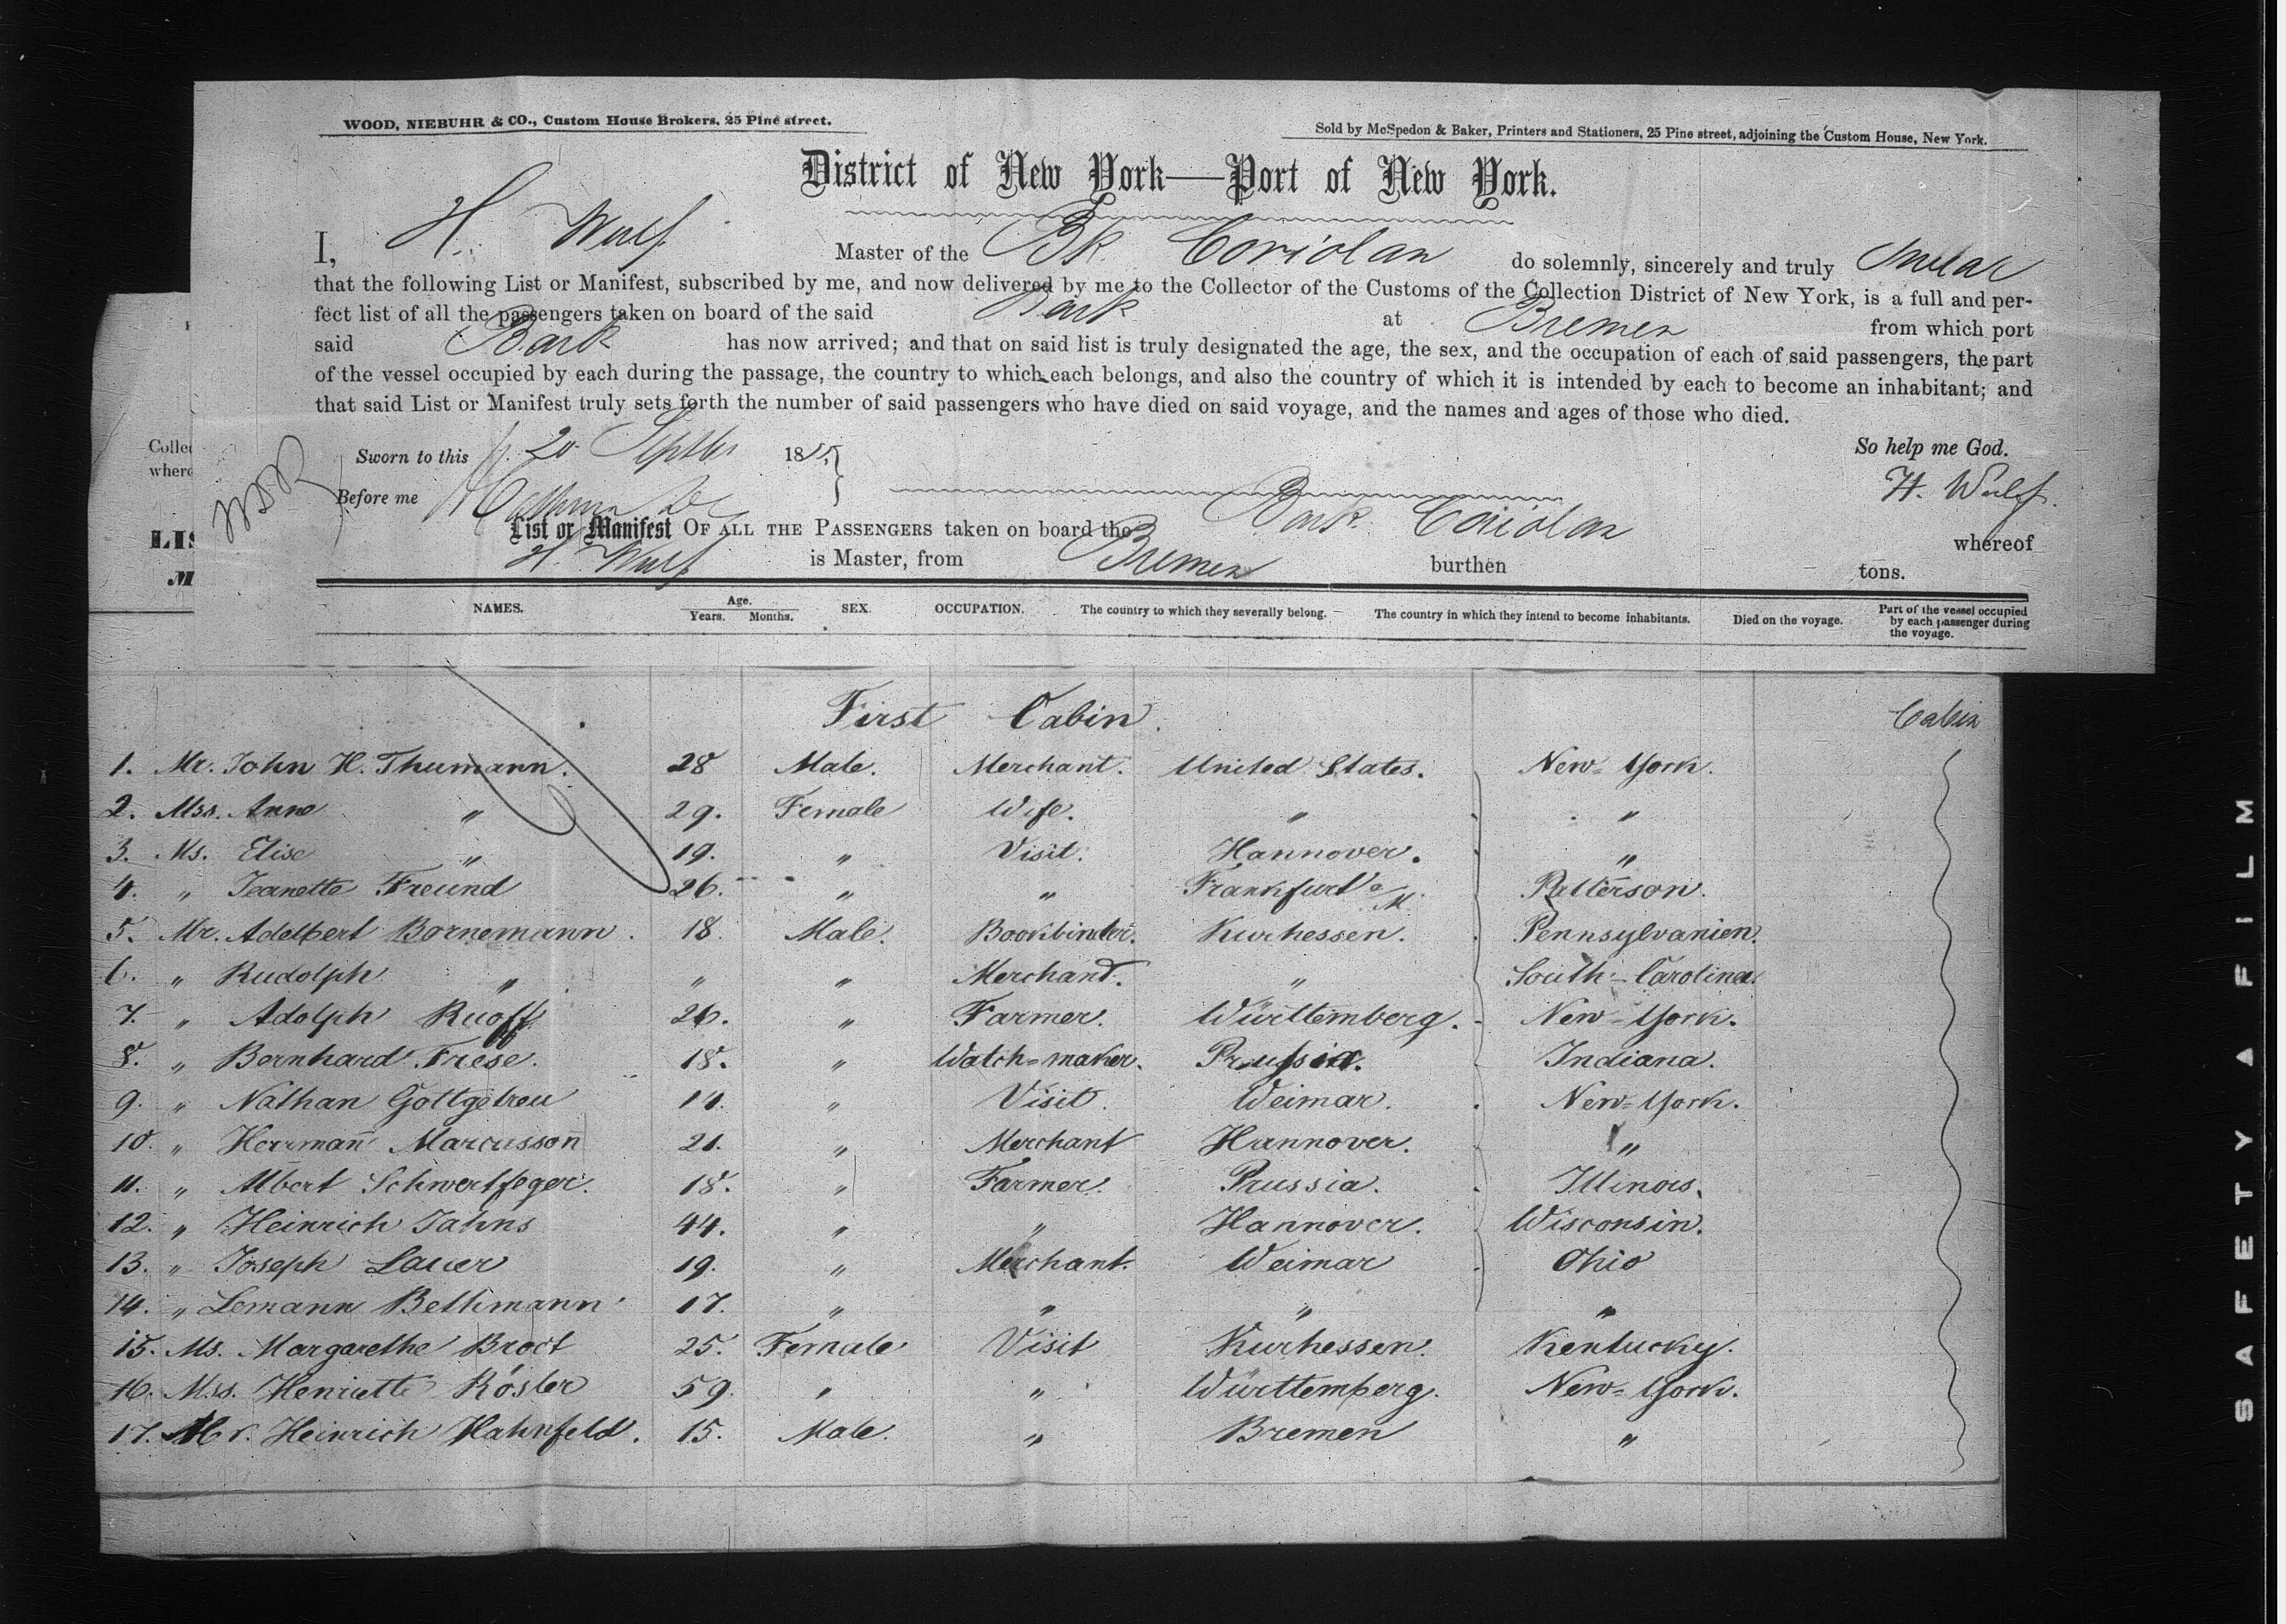 WOOD, NIEBUHR & CO., Custom House Brokers, 25 Pine street.
Sold by McSpedon & Baker, Printers and Stationers, 25 Pine street, adjoining the Custom House, New York.
District of New York—Port of New York.
I, H. Wulf Master of the Bk Coriolan do solemnly, sincerely and truly swear
that the following List or Manifest, subscribed by me, and now delivered by me to the Collector of the Customs of the Collection District of New York, is a full and per-
fect list of all the passengers taken on board of the said Bark at Bremen from which port
said Bark has now arrived; and that on said list is truly designated the age, the sex, and the occupation of each of said passengers, the part
of the vessel occupied by each during the passage, the country to which each belongs, and also the country of which it is intended by each to become an inhabitant; and
that said List or Manifest truly sets forth the number of said passengers who have died on said voyage, and the names and ages of those who died.
Sworn to this 20 Septbr 18 So help me God.
Before me H. Wulf
List or Manifest OF ALL THE PASSENGERS taken on board the Bark Coriolan whereof
H. Wulf is Master, from Bremen burthen tons.
Collec
where
LIS
M
NAMES. Age. Years. Months. SEX. OCCUPATION. The country to which they severally belong. The country in which they intend to become inhabitants. Died on the voyage. Part of the vessel occupied by each passenger during the voyage.
First Cabin. Cabin
1. Mr. John H. Thumann. 28 Male. Merchant. United States. New-York.
2. Mss. Anna " 29. Female Wife. " "
3. Ms. Elise " 19. " Visit. Hannover. "
4. " Jeanette Freund 26. " " Frankfurt a/M. Patterson.
5. Mr. Adelbert Bornemann. 18. Male. Bookbinder. Kurhessen. Pennsylvanien.
6. " Rudolph " " " Merchand. " South-Carolina.
7. " Adolph Ruoff 26. " Farmer. Württemberg. New-York.
8. " Bernhard Frese. 18. " Watch-maker. Prussia. Indiana.
9. " Nathan Gottgetreu 14. " Visit. Weimar. New-York.
10. " Herrmañ Marcussoñ 21. " Merchant Hannover. "
11. " Albert Schwertfeger. 18. " Farmer. Prussia. Illinois.
12. " Heinrich Jahns 44. " " Hannover. Wisconsin.
13. " Joseph Lauer 19. " Merchant. Weimar Ohio
14. " Lemann Bethmann 17. " " " "
15. Ms. Margarethe Broct 25. Female Visit Kurhessen. Kentucky.
16. Mss. Henriette Rösler 59. " " Württemberg. New-York.
17. Mr. Heinrich Hahnfeld. 15. Male. " Bremen "
SAFETY A FILM